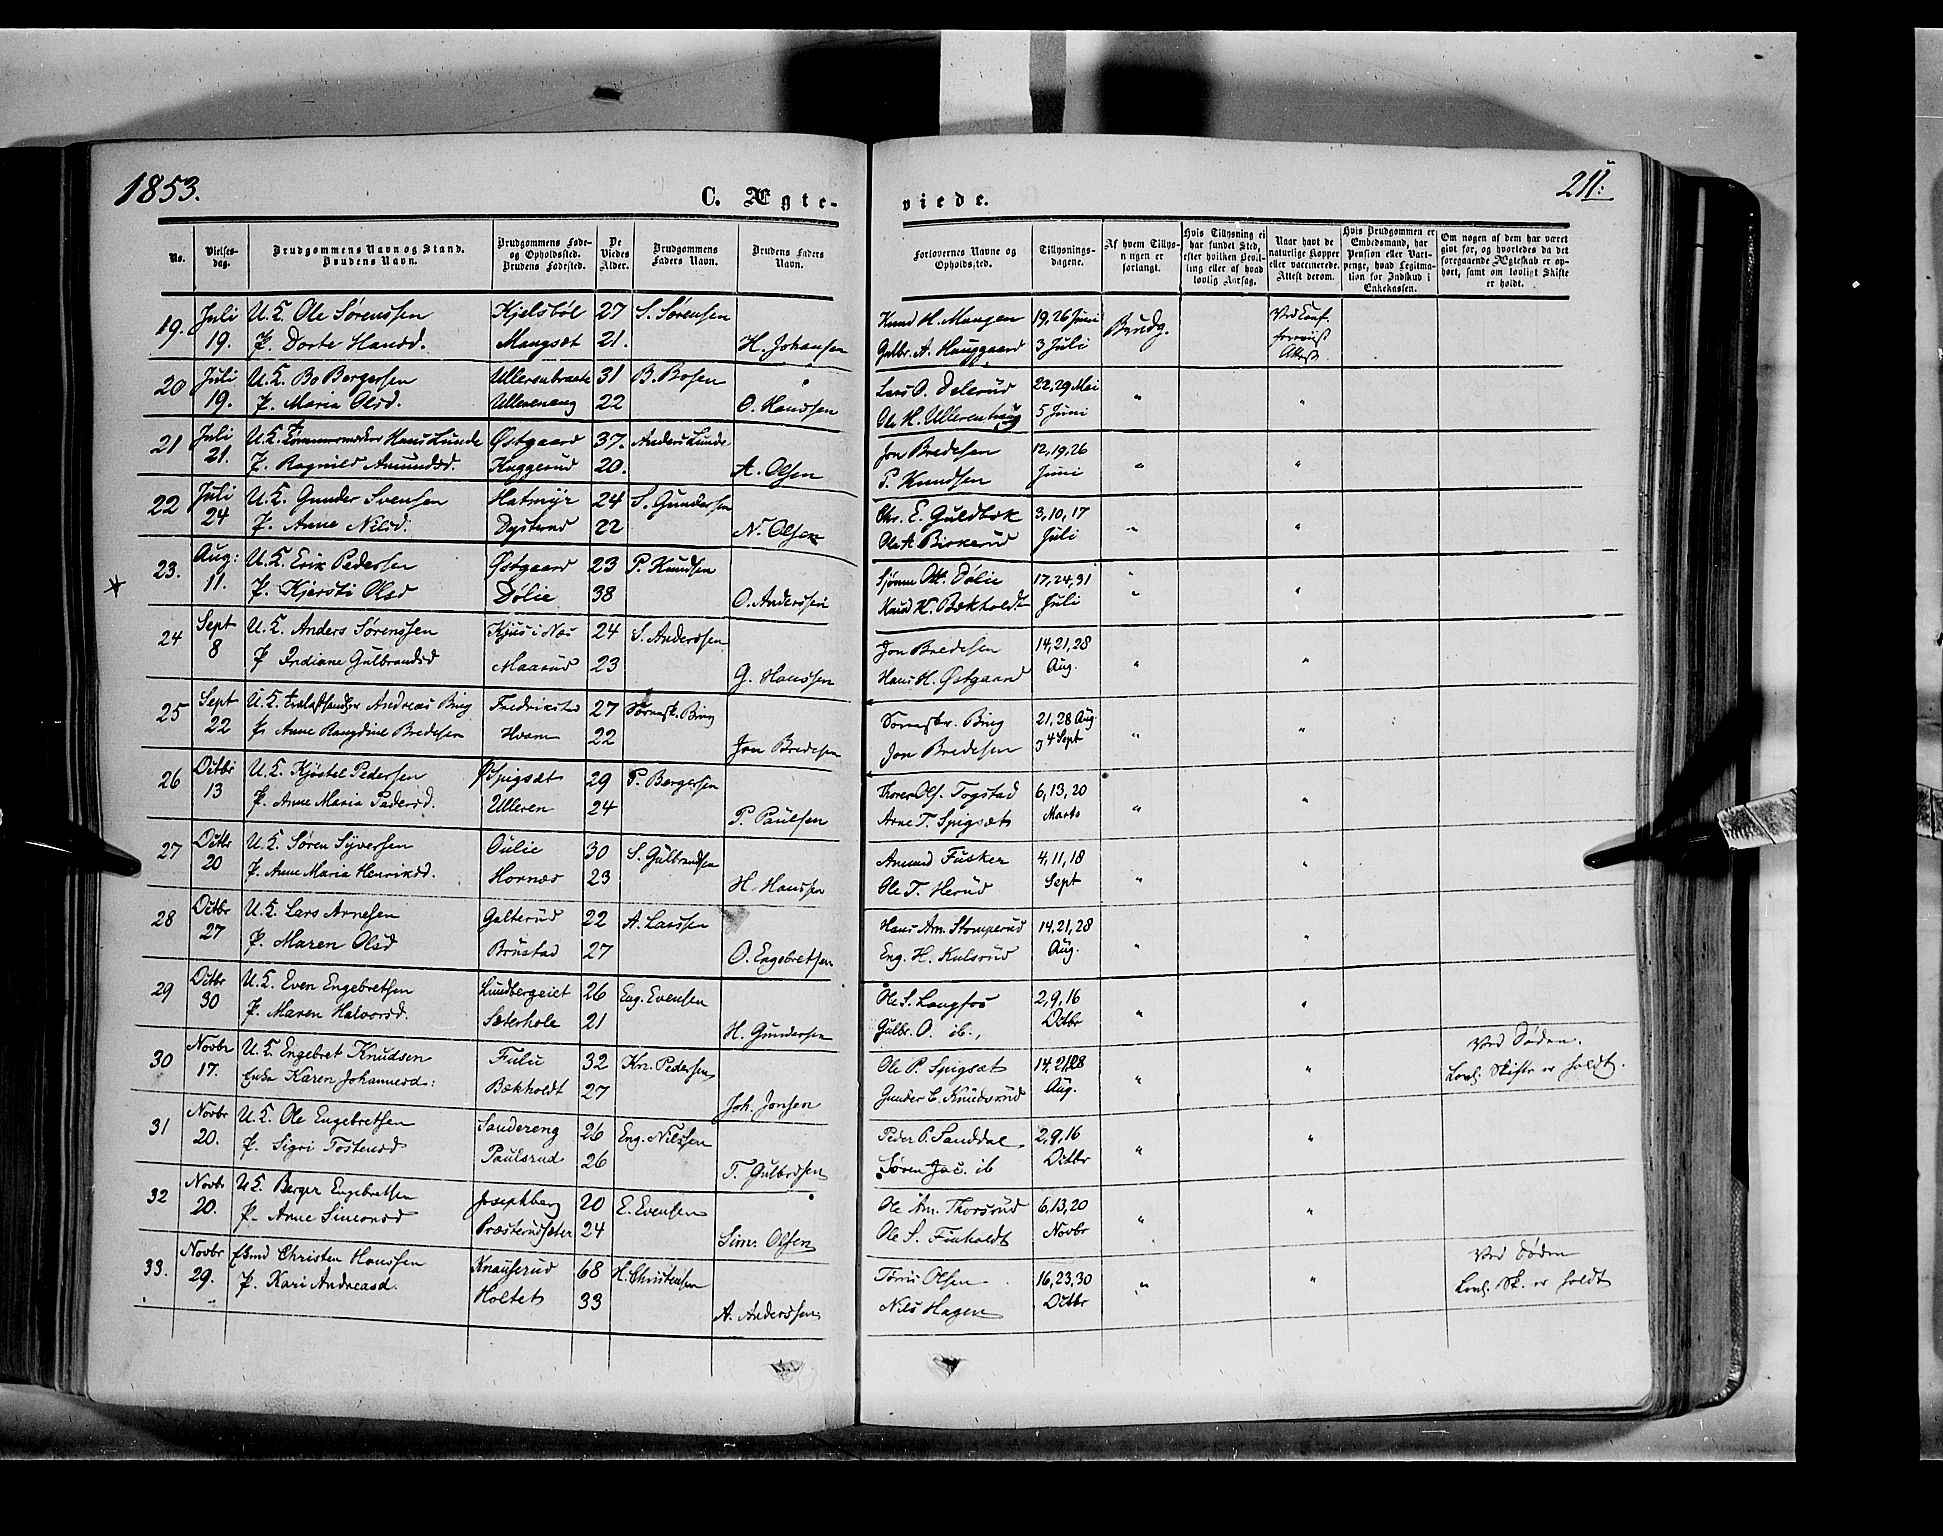 1853.
C. Ægte-
viede.
211:
No.
Vielses-
dag.
Brudgommens Navn og Stand.
Brudens Navn.
Brudgommens Føde-
og Opholdssted.
Brudens Fødested.
De
Viedes
Alder.
Brudgommens
Faders Navn.
Brudens Faders
Navn.
Forlovernes Navne og
Opholdssted.
Tillysnings-
dagene.
Af hvem Tillys-
ningen er
forlangt.
Hvis Tillysning ei
har fundet Sted,
efter hvilken Bevil-
ling eller af hvad
lovlig Aarsag.
Naar havt de
naturlige Kopper
eller vaccinerede.
Attest derom.
Hvis Brudgommen er
Embedsmand, har
Pension eller Vart-
penge, hvad Legitima-
tion for Indskud i
Enkekassen.
Om nogen af dem har været
givt før, og hvorledes da det
foregaaende Ægteskab er op-
hørt, samt om lovligt Skifte
er holdt.
19. Juli U. K. Ole Sørenssen Kjelsbøl 27 S. Sørensen Knud H. Mangen 19, 26 Juni Brudg. Ved Conf.
19. P. Dorte Hansd. Mangsæt 21. H. Johansen Gulbr. A. Hauggaard 3 Juli Attest
20 Juli U. K. Bo Bergersen 31 B. Bosen Lars O. 22, 29 Mai " "
19. P. Maria Olsd. Ullereneng 22 O. Hanssen Ole H. Ullerenhaug 5 Juni
21 Juli U. K. Hans Lunde Østgaard 37. Anders Lunde Jon Bredesen 12, 19, 26 " "
21. P. Ragnild Amundsd. Kuggerud 20. A. Olsen P. Knudsen Juni
22 Juli U. K. Gunder Svensen Hatmyr 24 S. Gundersen Chr. E. Guldbæk 3, 10, 17 " "
24 P. Anne Nilsd. Dystrud 22 N. Olsen Ole A Birkerud Juli
23. Aug: U. K. Erik Pedersen Østgaard 23 P. Knudsen Dølie 17, 24, 31 " "
11. P. Kjersti Olsd Dølie 38 O. Anderssen Knud K. Bækholdt Juli
24 Sept U. K. Anders Sørenssen Kjus i Næs 24 S. Anderssen Jon Bredesen 14, 21, 28 " "
8 P. Indiane Gulbrandsd Maarud 23 G. Hanssen Hans H. Østgaard Aug.
25 Sept U. K. Andreas Bing Fredrikstad 27 Bing Bing 21, 28 Aug. " "
22 P. Anne Rangdine Bredesen Hvam 22 Jon Bredesen Jon Bredesen 4 Sept
26 Octbr U. K. Kjøstel Pedersen Spigsæt 29 P. Bergersen Thorer Ols. Togstad 6, 13, 20 " "
13 P. Anne Maria Pedersd. Ulleren 24 P. Paulsen Arne T. Spigsæt Marts
27 Octbr U. K. Søren Syversen Oulie 30 S. Gulbrandsen Amund Fusker 4, 11, 18 " "
20 P. Anne Maria Henriksd. Hornæs 23 H. Hanssen Ole T. Herud Sept
28 Octbr U. K. Lars Arnesen Galterud 22 A. Larssen Hans Am. Stomperud 14, 21, 28 " "
27 P. Maren Olsd Brustad 27 O. Engebretsen Eng. H. Kulsrud Aug.
29 Octbr U. K. Even Engebretsen Lundbergeiet 26 Eng. Evensen Ole S. Langfos 2, 9, 16 " "
30 P. Maren Halvorsd. Sæterhole 21 H. Gundersen Gulbr. O. ib., Octbr
30 Novbr U. K. Engebret Knudsen Fulu 32 Kn. Pedersen Ole P. Spigsæt 14, 21, 28 " " Ved Døden.
17. Enke Karen Johannesd: Bækholdt 27 Joh. Jonsen Gunder E. Knudsrud Aug. Lovl. Skifte er holdt.
31 Novbr U. K. Ole Engebretsen Sandereng 26 Eng. Nilssen Peder P. Sanddal 2, 9, 16 " "
20. P. Sigri Tostensd Paulsrud 26 T. Gulbrdsen Søren Jac. ib Octbr
32 Novbr U. K. Berger Engebretsen Josephberg 20 E. Evensen Ole Am. Thorsrud 6, 13, 20 " "
20. P. Anne Simonsd Præsterudsæter 24 Sim. Olsen Ole S. Finholdt Novbr
33. Novbr Ekmd Christen Hanssen Knauserud 68 H. Christensen Olsen 16, 23, 30 " " Ved Døden
29. P. Kari Andreasd. Holtet 33 A. Anderssen Nils Hagen Octbr Lovl. Sk. er holdt